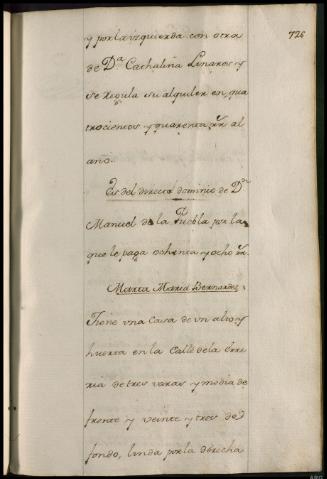 726
y por la izquierda con otra
de Da. Cathalina Linares y
se regula su alquiler en qua
trocientos y quarenta rr. al
año.
Es del directo dominio de Dn.
Manuel de la Puebla por la
que le paga ochenta y ocho rr.
Marta Maria Bernardes.
Tiene una Casa de un alto y
huerta en la Calle de la
ria de tres varas y media de
frente y veinte y tres de
fondo, linda por la derecha